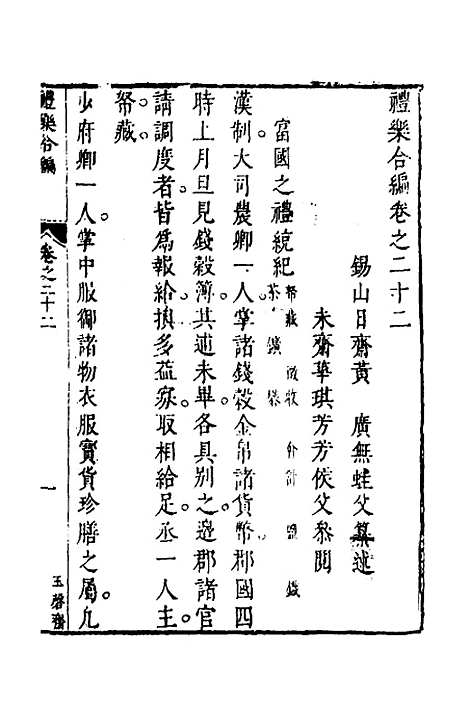 禮樂合編卷之二十二
錫山日齋黃　廣無蛙父纂述
未齋華琪芳芳侯父叅閱
富國之禮統紀　帑藏　徵收　會計　鹽鐵　茶　礦　榮
漢制大司農卿一人掌諸錢穀金帛諸貨幣郡國四
時上月旦見錢穀簿其逋未畢各具别之邊郡諸官
請調度者皆爲報給損多益寡取相給足丞一人主
帑藏
少府卿一人掌中服御諸物衣服寶貨珍膳之屬凢
禮樂合編
卷之二十二
一
玉磬齋